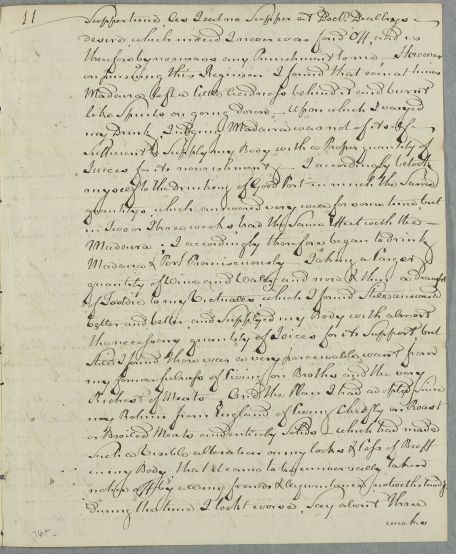 11
Suppertime as I eat no Supper at Doctr.
desire which indeed I never was fond Off, and is
therefore by no means any Punishment to me; However
on pursuing this Regimen I found that even at times
Madeira left a little hardness behind it and burnt
like Spirits on going down; Upon which I varyed
my Drink, Judging Madeira was not of its self
Sufficient to Supply my Body with a Proper quantity of
Juices for its nourishment, I accordingly betook
myself to the drinking of Good Port in much the Same
quantitys which answered very well for some time but
in Two or Three weeks had the Same Effect with the
Madeira; I accordingly therefore began to drink
Madeira & Port Promiscuously Taking a larger
quantity of Wine and Water and now & then a Draught
of Toddie to my Victuals, which I found Still answered
better and better and Supplyed my Body with almost
the necessary quantity of Juices for its Support, but
Still I found there was a very perceivable want from
my former fulness of Living on Broths and the very
Richest of Meats, And the Plan I had adopted Since
my Return from England of living Chiefly on Roast
or Broiled Meats and entirely Solids which had made
Such a Visible alteration on my looks & Loss of Beeff
in my Body that it came to be universally taken
notice off by all my friends & acquaintances notwithstanding
during the time I look't worse, Say about Three
weeks